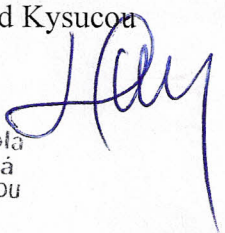 d Kysucou
ola
á
ou